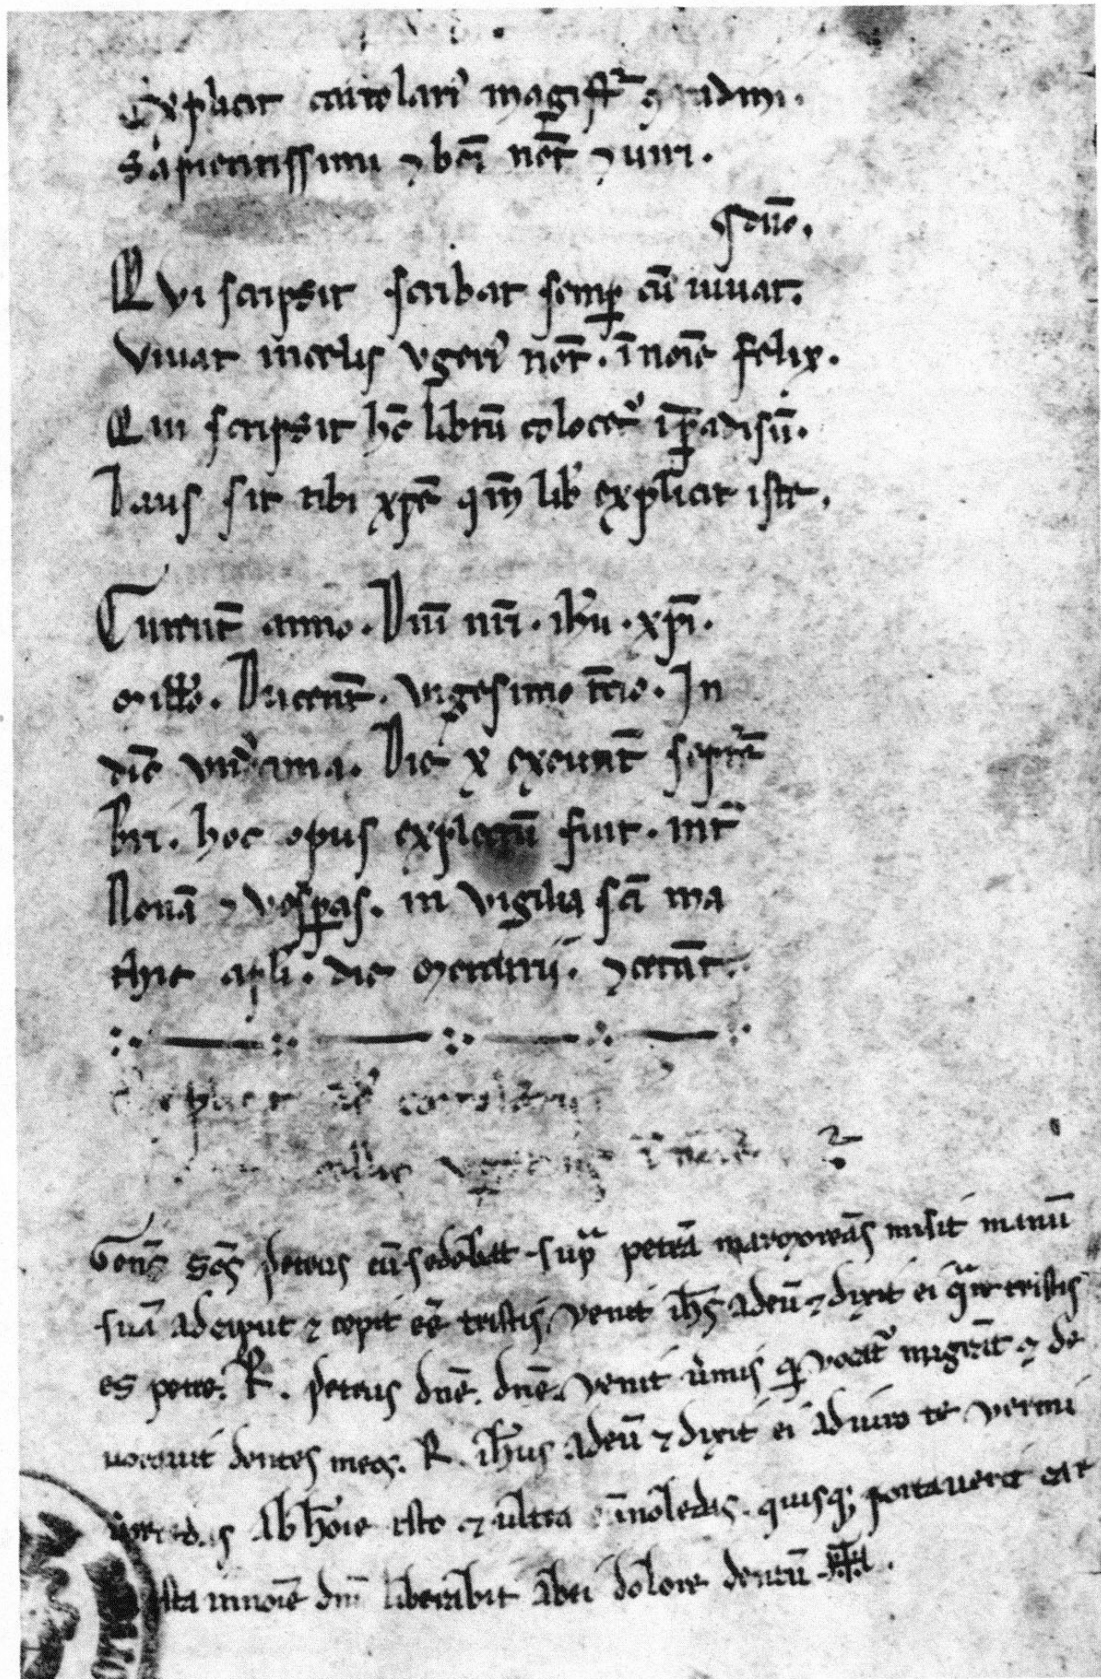 Explicit cartolari magistr
Sapientissimi ⁊ boī not̄ ⁊ uiri.
Qvi scripsit scribat semp cū uiuat.
Viuat incelis vgeri not̄. ī noīe felix.
Qui scripsit hc̄ librū colocet᷒ ip̱adisū.
Laus sit tibi xp̄e qm̄ lib̄ explicit iste.
Current̄ anno. Dn̄i nr̄i. ih̄u. xp̄i.
mill̄o. Ducent̄. vigesimo t̄cio. In
dic̄e vndecima. Die x exeunt̄ septē
bri. hoc opus expletū fuit. int̄
Nonā ⁊ vesp̱as. in vigilia sc̄i ma
thie apl̄i. die mercurii.
Explicit
Cum sc̄s petrus cū sedebat sup̄ petrā marmoreā misit manū
suā ad caput ⁊ cepit eē tristis. venit ih̄s ad eū ⁊ dixit ei q̄re tristis
es petre. R. petrus dn̄e. dn̄e. venit v̄mis q̱ vocat᷒ migrāt ⁊ de
uorauit dentes meos. R. ih̄us ad eū ⁊ dixit ei adiuro te vermi
ab hōie isto ⁊ ultra nō ledas. quisq; portauerit car
ista innoīe dn̄i liberabit᷒ dolore dentiū